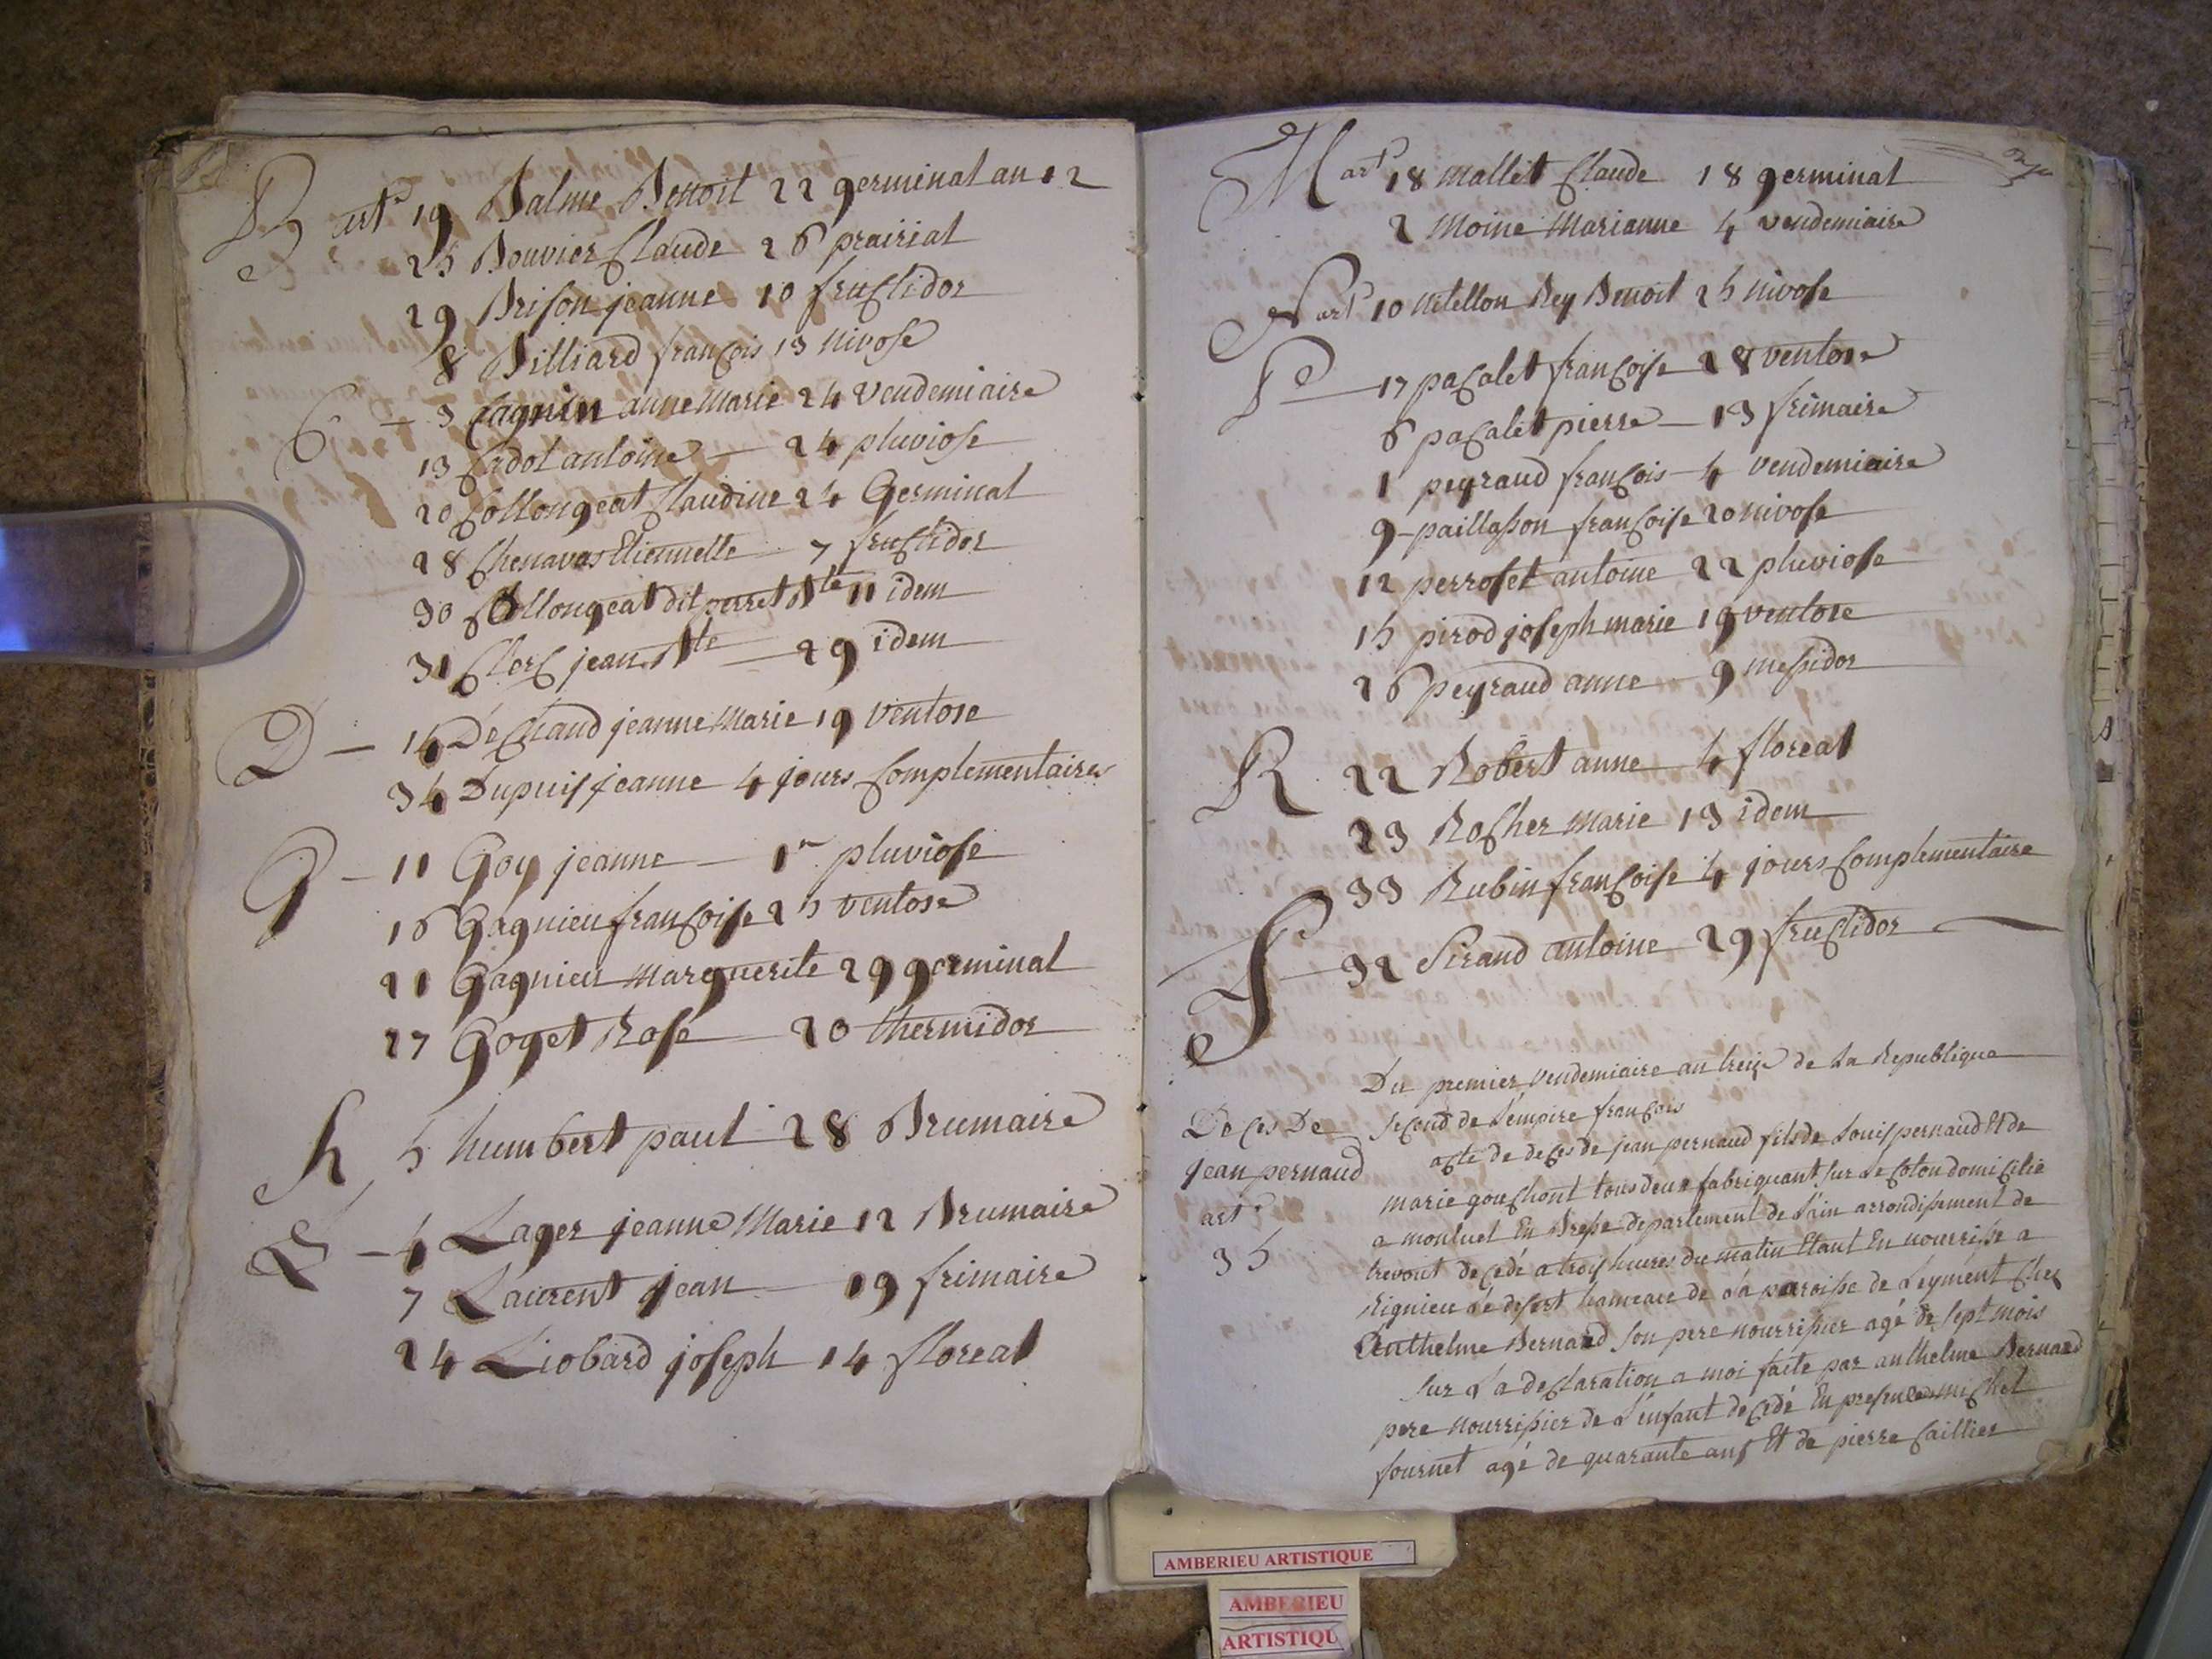 B art.e 19 Balme Benoit 22 germinal an 12
25 Bouvier Claude 26 prairial
29 Brison jeanne 10 fructidor
8 Billiard françois 13 nivose
C - 3 Cagnin anne marie 24 vendemiaire
13 Cadot antoine - 24 pluviose
20 Collongeat Claudine 24 Germinal
28 Chenavas Etiennette 7 fructidor
30 Collongeat dit perret Bte 11 idem
31 Clerc jean Bte - 29 idem
D - 14 Declaud jeanne Marie 19 ventose
34 Dupuis jeanne 4 jours complementaires
G - 11 Goy jeanne - 1er pluviose
16 Gagnieu françoise 25 ventose
21 Gagnieu Marguerite 29 germinal
27 Goget Rose 20 thermidor
h 5 humbert paul 28 Brumaire
L - 4 Lager jeanne Marie 12 Brumaire
7 Laurent jean 19 frimaire
24 Liobard joseph 14 floreal
M art.e 18 Mallet Claude 18 germinal
2 Moine Marianne 4 vendemiaire
N art.e 10 Nitellon Rey Benoit 25 nivose
P - 17 pacalet françoise 28 ventose
6 pacalet pierre - 13 frimaire
1 peyraud françois - 4 vendemiaire
9 - paillasson françoise 20 nivose
12 perroset antoine 22 pluviose
15 pirod joseph marie 19 ventose
26 peyraud anne - 9 messidor
R 22 Robert anne 4 floreal
23 Rocher Marie 13 idem
33 Rubin françoise 4 jours complementaire
S 32 Sirand antoine 29 fructidor
Du premier vendemiaire an treize de la Republique
second de l'empire françois
Deces De
jean pernaud
art.e
35
acte de deces de jean pernaud fils de Louis pernaud Et de
marie gouchont tous deux fabriquant sur le coton domicilié
a montuel En Bresse departement de l'ain arrondissement de
trevout decedé a trois heures du matin Etant En nourrisse a
Rignieu le desert hameau de la parroisse de Leyment chez
Anthelme Bernard son pere nourrissier agé de sept mois
sur la declaration a moi faite par anthelme Bernard
pere nourrissier de l'enfant decedé En presence michel
fournet agé de quarante ans Et de pierre caillier
AMBERIEU ARTISTIQUE
AMBERIEU
ARTISTIQU